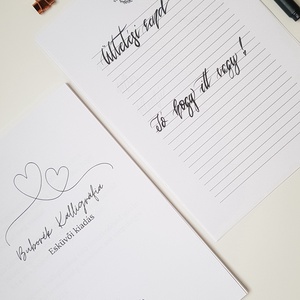 Ültetési rend
Jó hogy itt vagy!
Buborék Kalligráfia
Esküvői kiadás